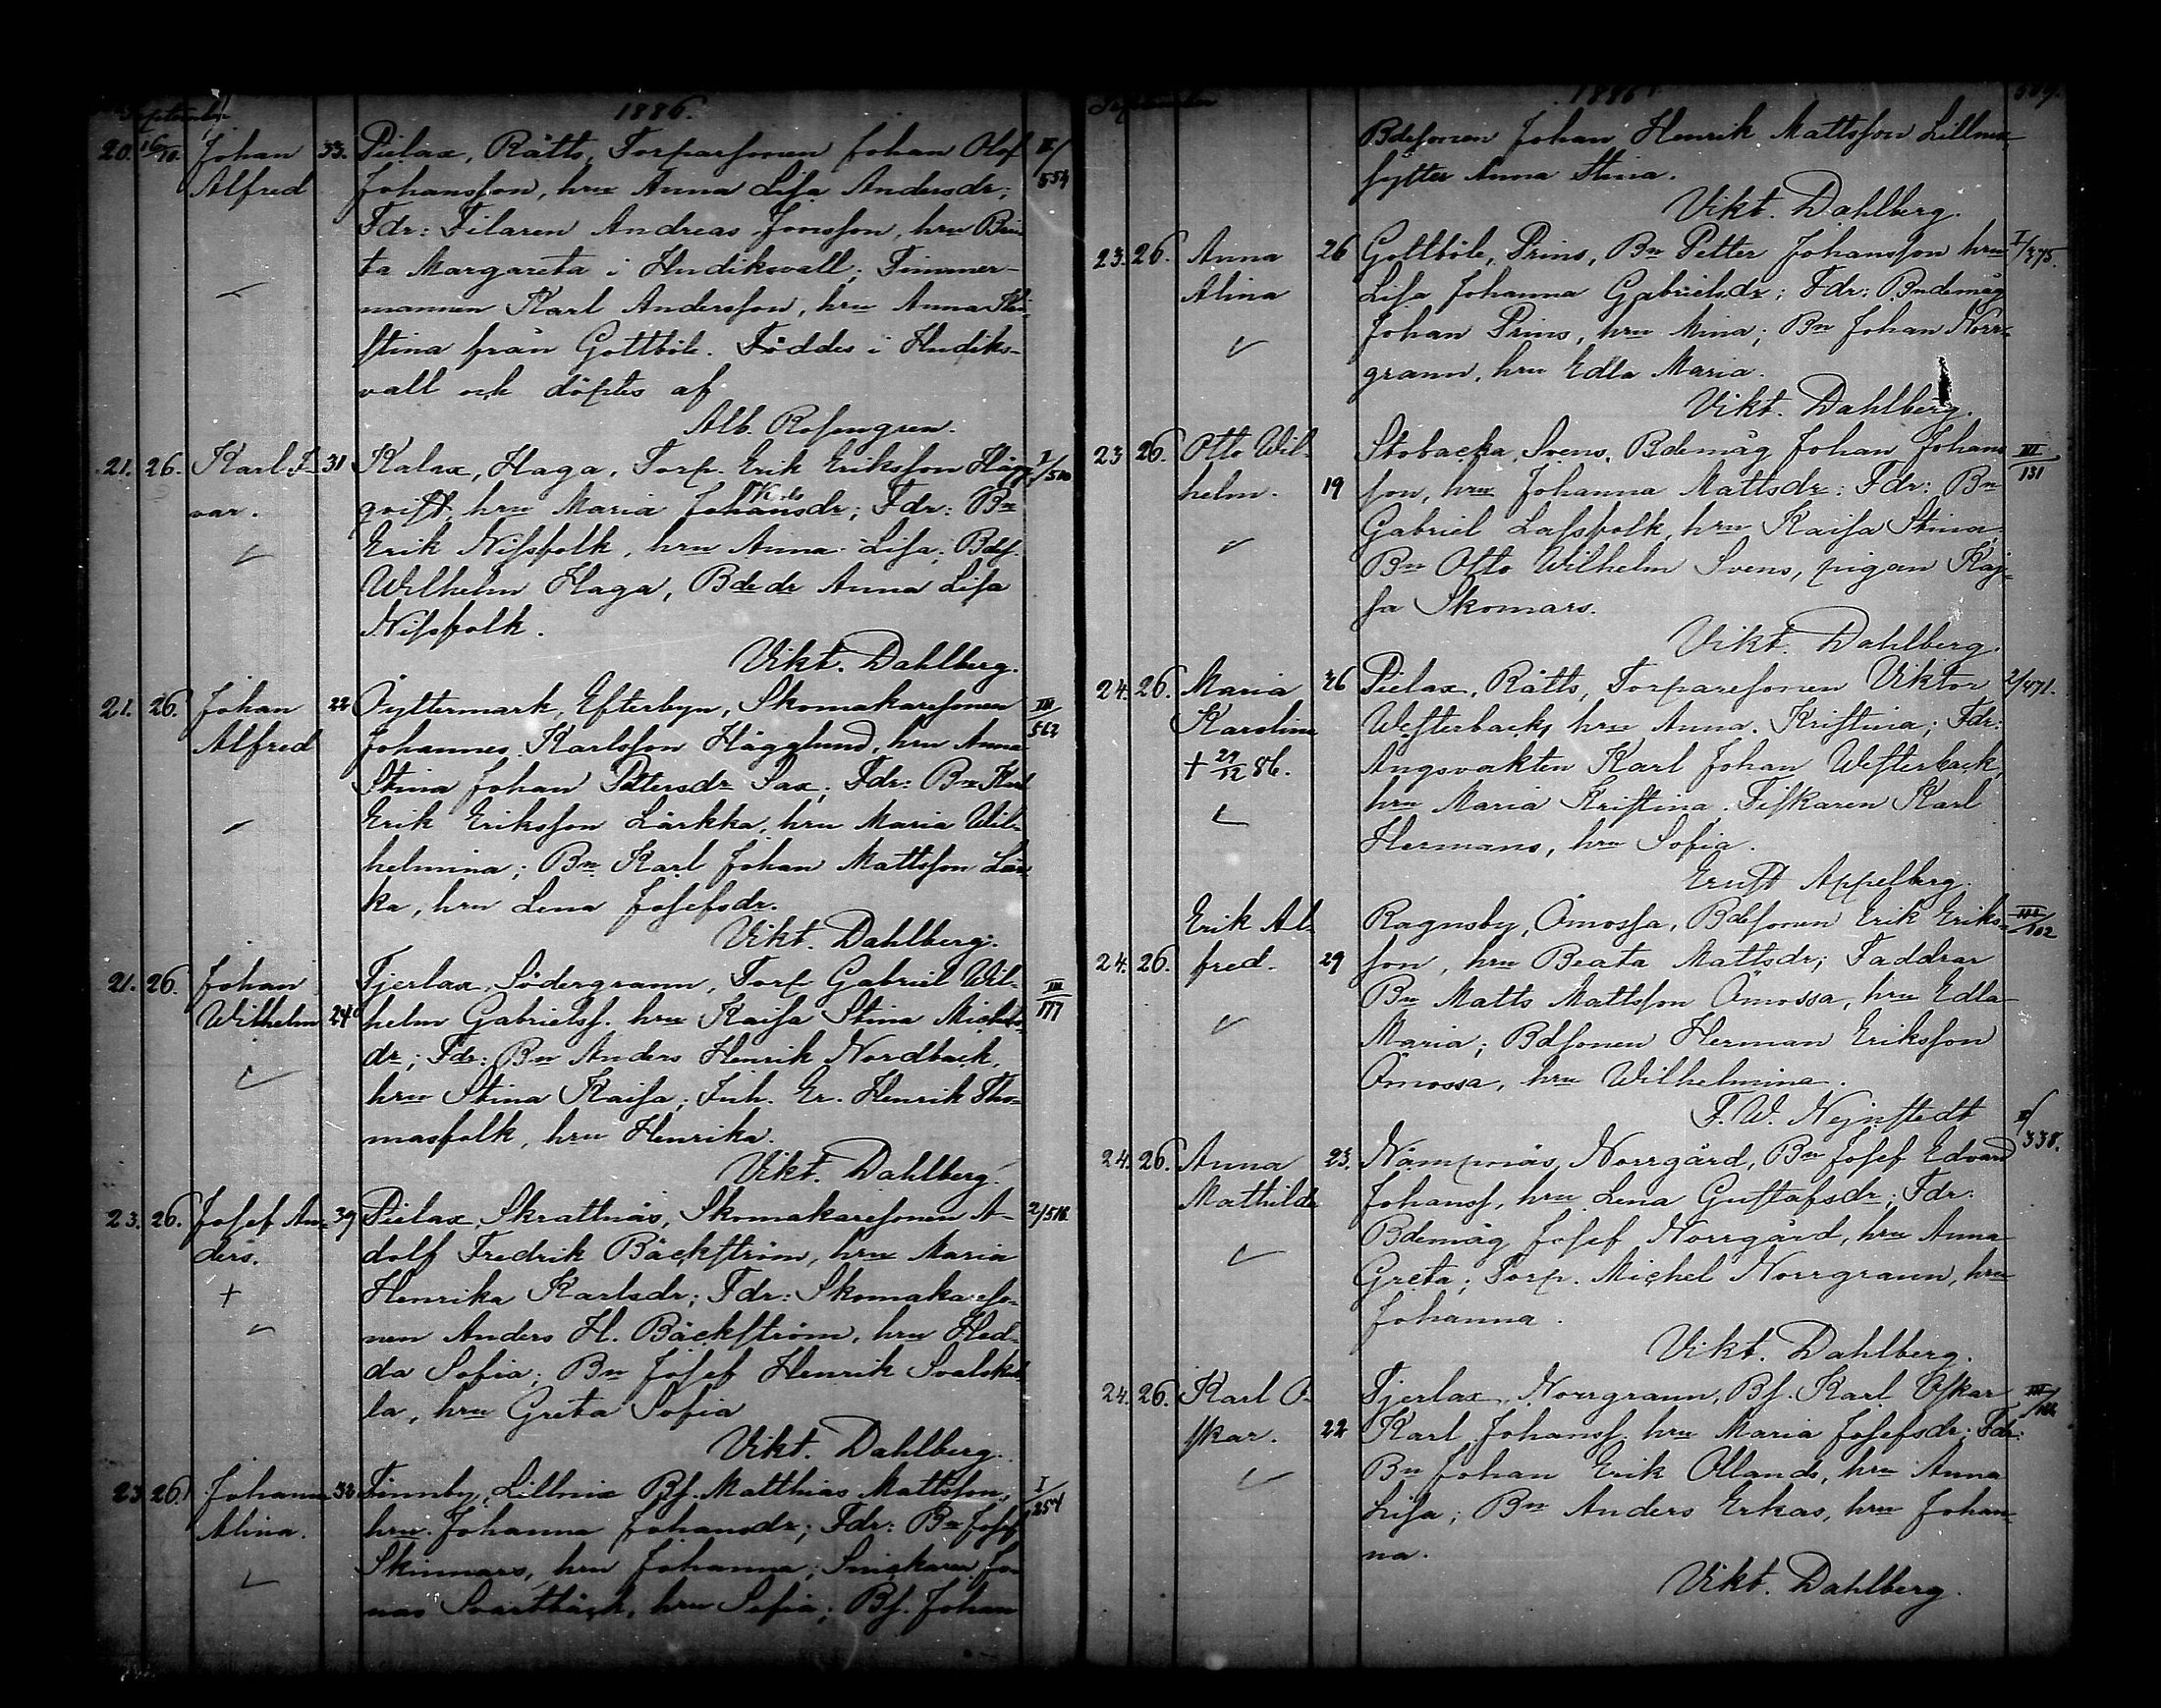 September 1886.
20. 16/10. Johan 33. Pielax, Rätts, Torparsonen Johan Olof II/554
Alfred Johansson, hru Anna Lisa Andersdr;
Fdr: Filaren Andreas Jonsson, hru Bri-
ta Margareta i Hudiksvall; Timmer-
mannen Karl Andersson, hru Anna
stina från Gottböle. Föddes i Hudiks-
vall och döptes af
Alb. Rosengren.
21. 26. Karl I- 31 Kalax, Haga, Torp. Erik Eriksson Hägg- I/500
var. qvist, hru Maria Johansdr; Fdr: Bn
Erik Nissfolk, hru Anna Lisa; Bdes.
Wilhelm Haga, Bdedr Anna Lisa
Nissfolk.
Vikt. Dahlberg.
21. 26. Johan 22 Öyttermark, Efterbyn, Skomakaresonen III/562
Alfred Johannes Karlsson Hägglund, hru Anna
Stina Johan Pettersdr Sax; Fdr: Bn Karl
Erik Eriksson Lärkka, hru Maria Wil-
helmina; Bn Karl Johan Mattsson Lär-
ka, hru Lena Josefsdr.
Vikt. Dahlberg.
21. 26. Johan Tjerlax, Södergrann, Torp Gabriel Wil- III/177
Wilhelm 24 helm Gabrielss. hru Kaisa Stina Michels-
dr; Fdr: Bn Anders Henrik Nordback,
hru Stina Kaisa; Inh. Er. Henrik Tho-
masfolk, hru Henrika.
Vikt. Dahlberg.
23. 26. Josef An- 39 Pielax, Skrattnäs, Skomakaresonen A- 2/518
ders. dolf Fredrik Bäckström, hru Maria
+ Henrika Karlsdr; Fdr: Skomakareso-
nen Anders H. Bäckström, hru Hed-
da Sofia; Bn Josef Henrik Svalskul-
la, hru Greta Sofia
Vikt. Dahlberg.
23 26. Johanna 32 Finnby, Lillnix Bs. Matthias Mattsson, I/254
Alina. hru. Johanna Johansdr; Fdr: Bn Josef
Skinnars, hru Johanna; Snickaren Jo-
nas Svartbäck, hru Sofia; Bs. Johan
September 1886. 509.
Bdesonen Johan Henrik Mattsson Lillnix,
sytter Anna Stina.
Vikt. Dahlberg.
23. 26. Anna 26 Gottböle, Prins, Bn Petter Johansson hru I/375.
Alina Lisa Johanna Gabrielsdr; Fdr: Bndemåg
Johan Prins, hru Mina; Bn Johan Norr-
grann, hru Edla Maria.
Vikt. Dahlberg.
23 26. Otto Wil- Stobacka, Svens, Bdemåg Johan Johans III/131
helm. 19 son, hru Johanna Mattsdr: Fdr: Bn
Gabriel Lassfolk, hru Kaisa Stina,
Bn Otto Wilhelm Svens, pigan Kaj-
sa Skomars.
Vikt. Dahlberg.
24. 26. Maria 26 Pielax, Rätts, Torparesonen Viktor 2/471.
Karolina Westerback, hru Anna Kristina; Fdr:
+ 29/12 86. Ängsvakten Karl Johan Westerback,
hru Maria Kristina. Fiskaren Karl
Hermans, hru Sofia.
Ernst Appelberg.
Erik Al- Ragnsby, Ömossa, Bdesonen Erik Eriks- III/102
24. 26. fred. 29 son, hru Beata Mattsdr; Faddrar
Bn Matts Mattsson Ömossa, hru Edla
Maria; Bdsonen Herman Eriksson
Ömossa, hru Wilhelmina.
F. W. Nejnstedt
24. 26. Anna 23. Nämpnäs, Norrgård, Bn Josef Edvard II/338.
Mathilda Johanss, hru Lena Gustafsdr; Fdr:
Bdemåg Josef Norrgård, hru Anna
Greta; Torp. Michel Norrgrann, hru
Johanna.
Vikt. Dahlberg.
24. 26. Karl O- Tjerlax, Norrgrann, Bs. Karl Oskar
skar. 22 Karl Johanss. hru Maria Josefsdr; Fdr:
Bn Johan Erik Ollands, hru Anna
Lisa; Bn Anders Erkas, hru Johan-
na.
Vikt. Dahlberg.